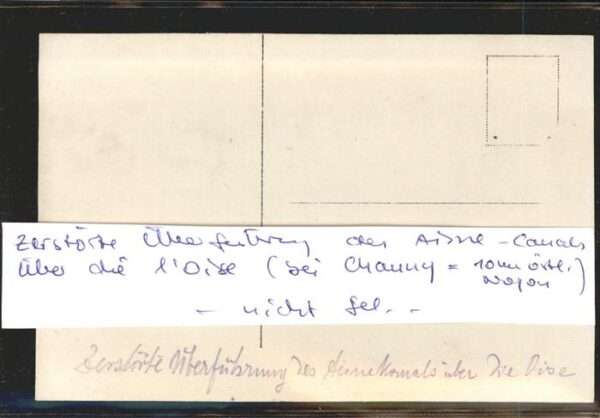 Zerstörte Überführung des Aisne-Canals
über die l'Oise (bei Chauny = 10 km östl.
Noyon)
- nicht gel. -
Zerstörte Überführung des Aisnekanals über die Oise